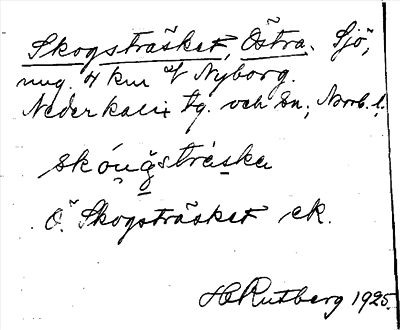 Skogsträsket, Östra. Sjö,
nug. 4 km v/ Nyborg.
Nederkalix tg. och sn., Norrb. l.
skóu̯gstráska
Ö. Skogsträsket ek.
H Rutberg 1925.